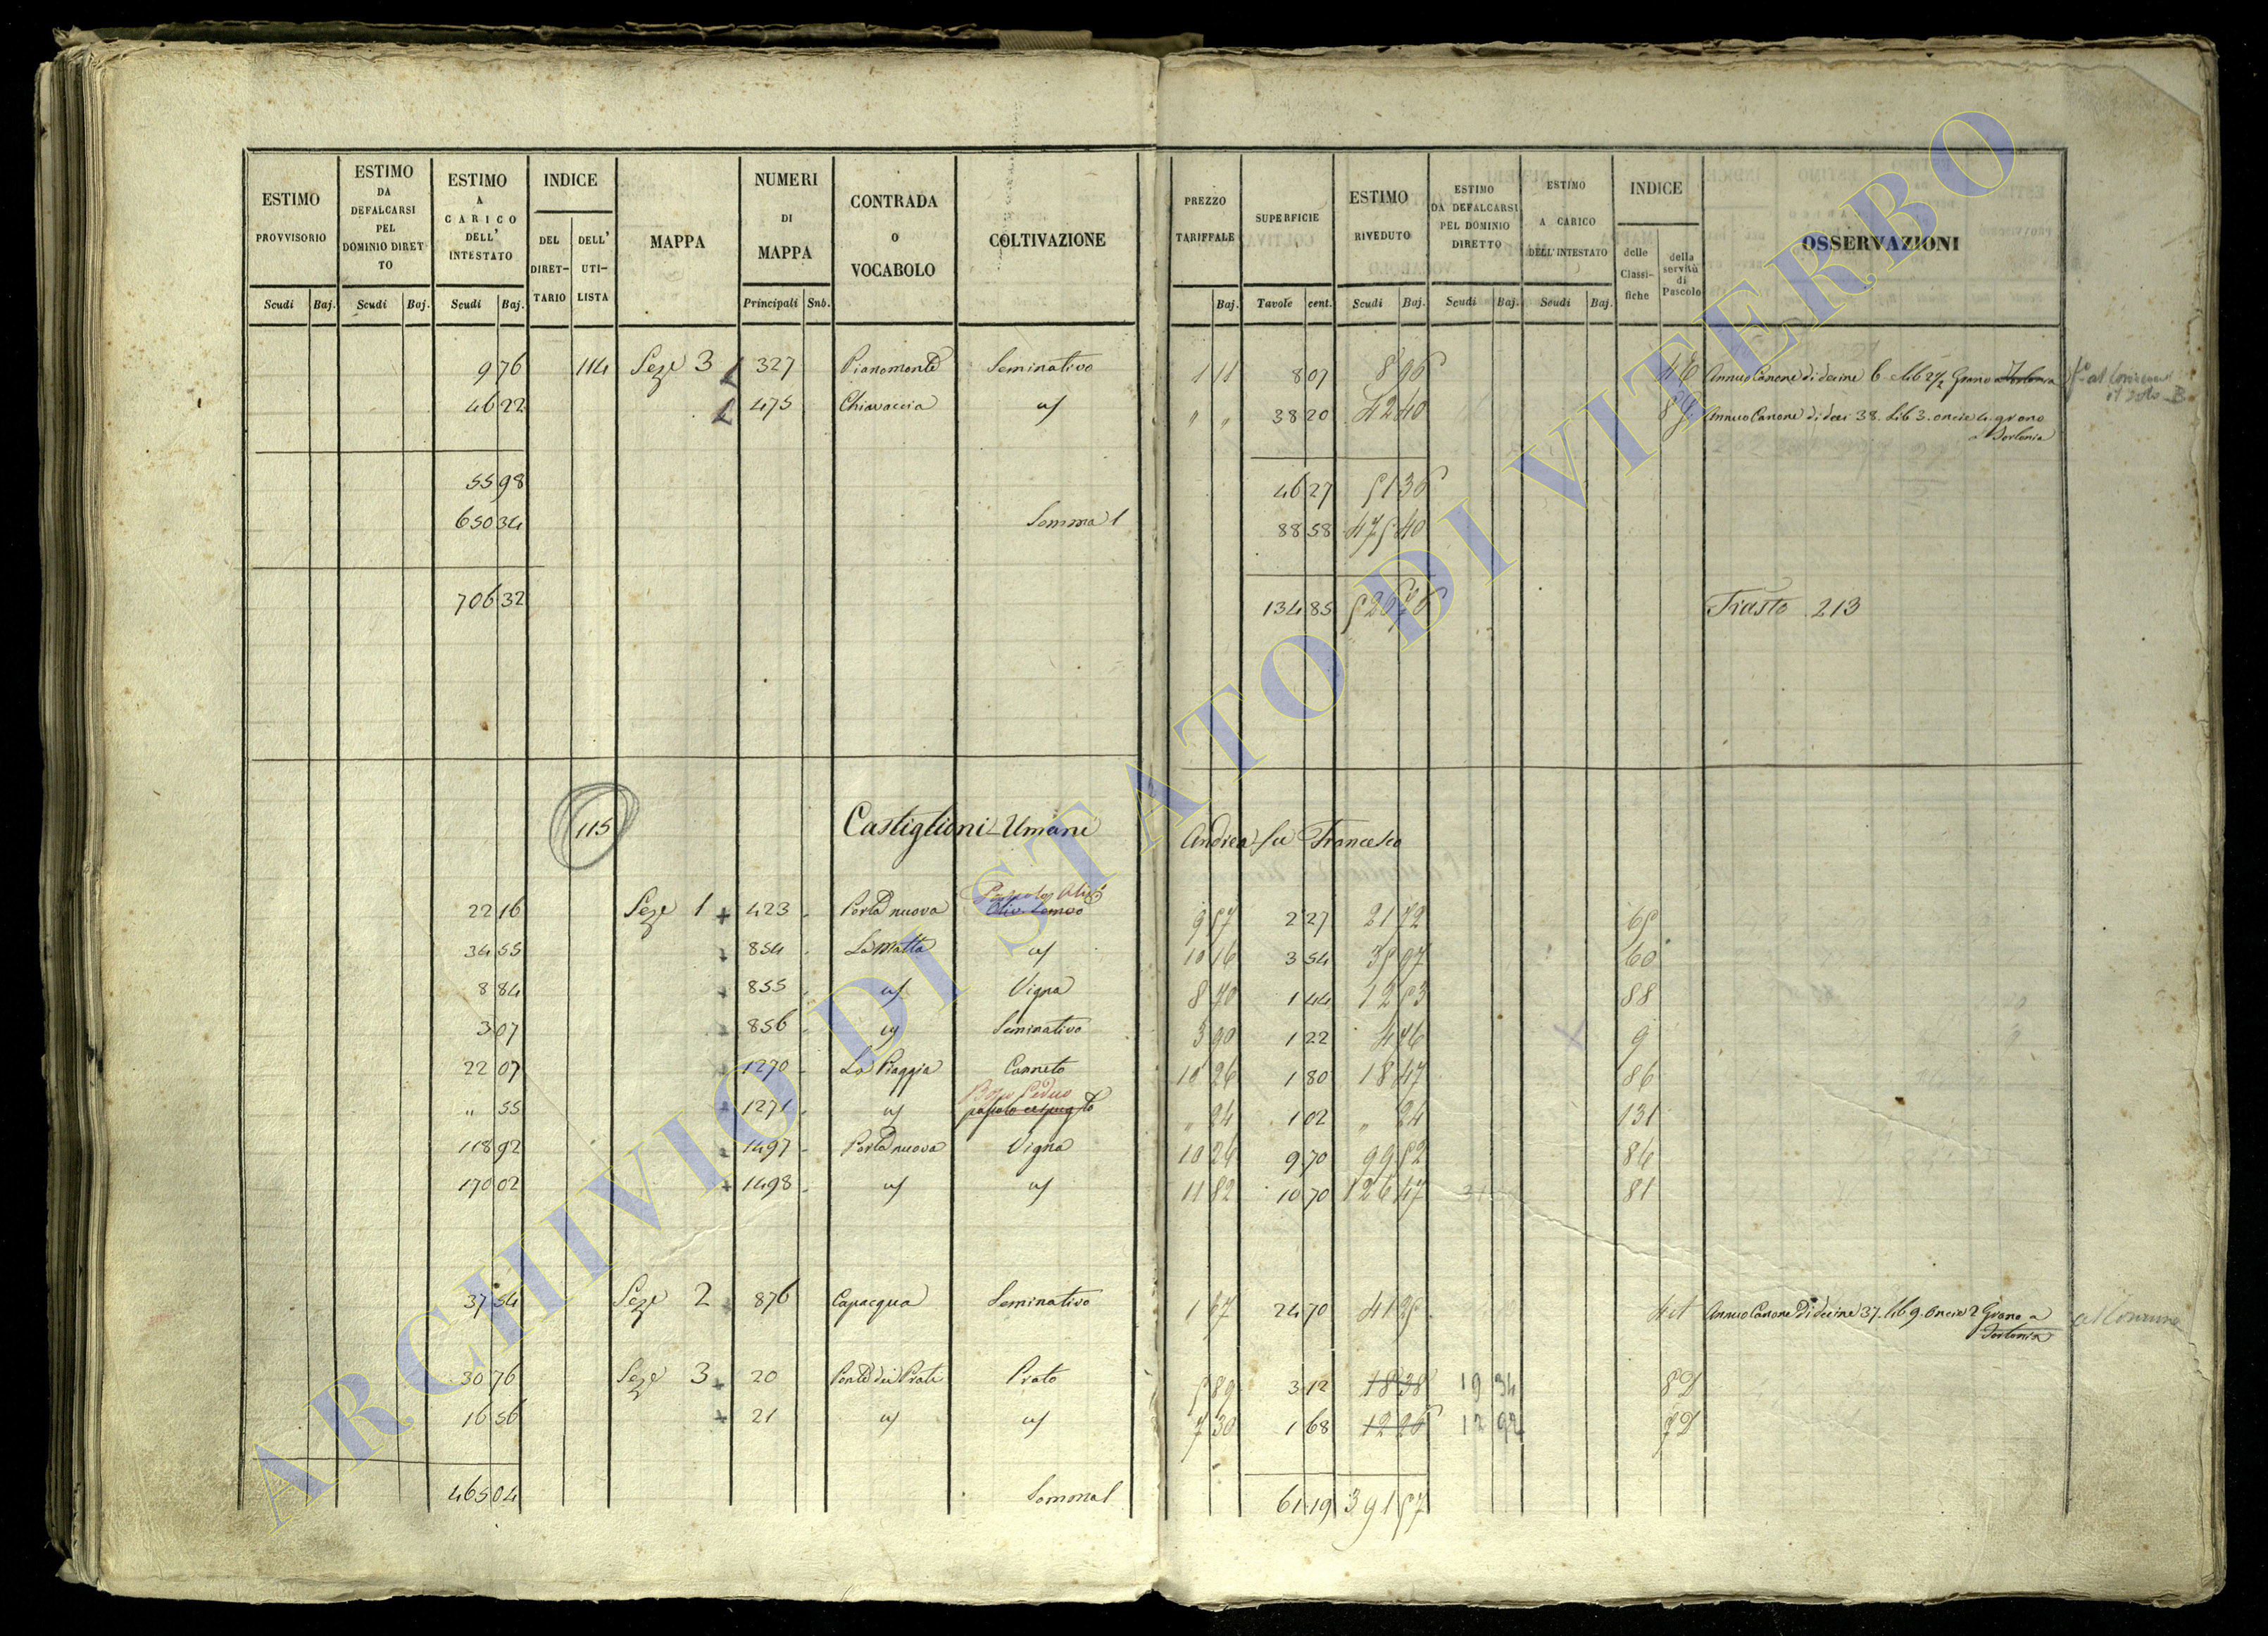 ESTIMO PROVVISORIO | ESTIMO DA DEFALCARSI PEL DOMINIO DIRETTO | ESTIMO A CARICO DELL' INTESTATO | INDICE | MAPPA | NUMERI DI MAPPA | CONTRADA O VOCABOLO | COLTIVAZIONE | PREZZO TARIFFALE | SUPERFICIE | ESTIMO RIVEDUTO | ESTIMO DA DEFALCARSI PEL DOMINIO DIRETTO | ESTIMO A CARICO DELL'INTESTATO | INDICE | OSSERVAZIONI
DEL DIRETTARIO | DELL' UTILISTA | delle Classifiche | della servitù di Pascolo
Scudi | Baj. | Scudi | Baj. | Scudi | Baj. | Principali | Snb. | Baj. | Tavole | cent. | Scudi | Baj. | Scudi | Baj. | Scudi | Baj.
9 76 114 Seze 3 327 Pianomonte Seminativo 1 11 8 07 8 96 4E Annuo Canone di decine 6 lib 2 1/2 Grano a Torlonia
46 22 475 Chiavaccia id " " 38 20 42 40 Annuo Canone di deci 38. Lib 3. oncie 4. grano
a Torlonia
55 98 46 27 51 36
650 34 Somma 1 88 58 475 40
706 32 134 85 526 76 Trasto 213
115 Castiglioni Umani Andrea fu Francesco
Pascolo Oliv°
22 16 Seze 1 + 423 Porta nuova 9 57 2 27 21 72 65
34 55 854 La Matta id 10 16 3 54 35 97 60
8 84 855 id Vigna 8 70 1 44 12 53 88
3 07 856 id Seminativo 3 90 1 22 4 76 9
22 07 1270 La Piaggia Canneto 10 26 1 80 18 47 86
Bosco Ceduo
" 55 1271 id pascolo cespugto " 24 1 02 " 24 131
118 92 1497 Porta nuova Vigna 10 26 9 70 99 52 86
170 02 1498 id id 11 82 10 70 126 47 81
37 54 Seze 2 876 Capacqua Seminativo 1 67 24 70 41 25 Annuo Canone di decine 37. lib 9. Oncie 2 Grano a al Comune
Torlonia
30 76 Seze 3 20 Ponte dei Prati Prato 5 89 3 12 18 38 19 34 8D
16 56 21 id id 7 30 1 68 12 26 12 92 7D
465 04 Somma 1 61 19 391 57
ARCHIVIO DI STATO DI VITERBO